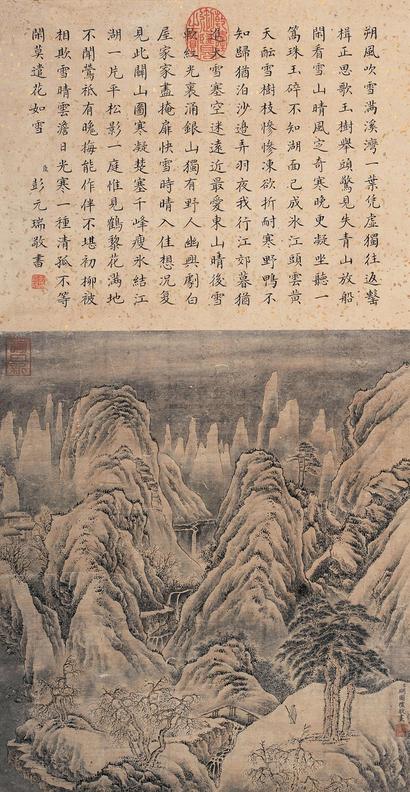 朔風吹雪滿溪灣一葉凭虛獨往返繫
楫正思歌玉樹舉頭驚見失青山放船
閒看雪山晴風定奇寒晚更凝坐聽一
篙珠玉碎不知湖面已成氷江頭雲黃
天酝雪樹枝慘慘凍欲折耐寒野鴨不
知歸猶泊沙邉弄羽夜我行江郊暮猶
進大雪塞空迷遠近最愛東山晴後雪
軟紅光裏涌銀山獨有野人幽興劇白
屋家家盡掩扉快雪時晴入佳想况复
見此關山圖寒凝楚塞千峰瘦氷結江
湖一片平松影一庭惟見鶴藜花滿地
不聞鶯祇有晚梅能作伴不堪初柳被
相欺雪晴雲澹日光寒一種清孤不等
閒莫遣花如雪
臣彭元瑞敬書